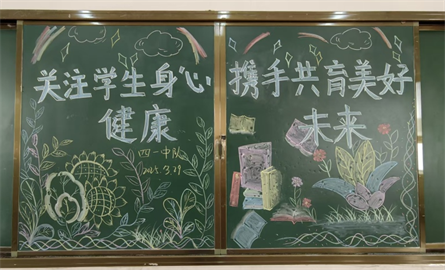 关注学生身心
健康
四一中队
2025.3.29
携手共育美好
未来